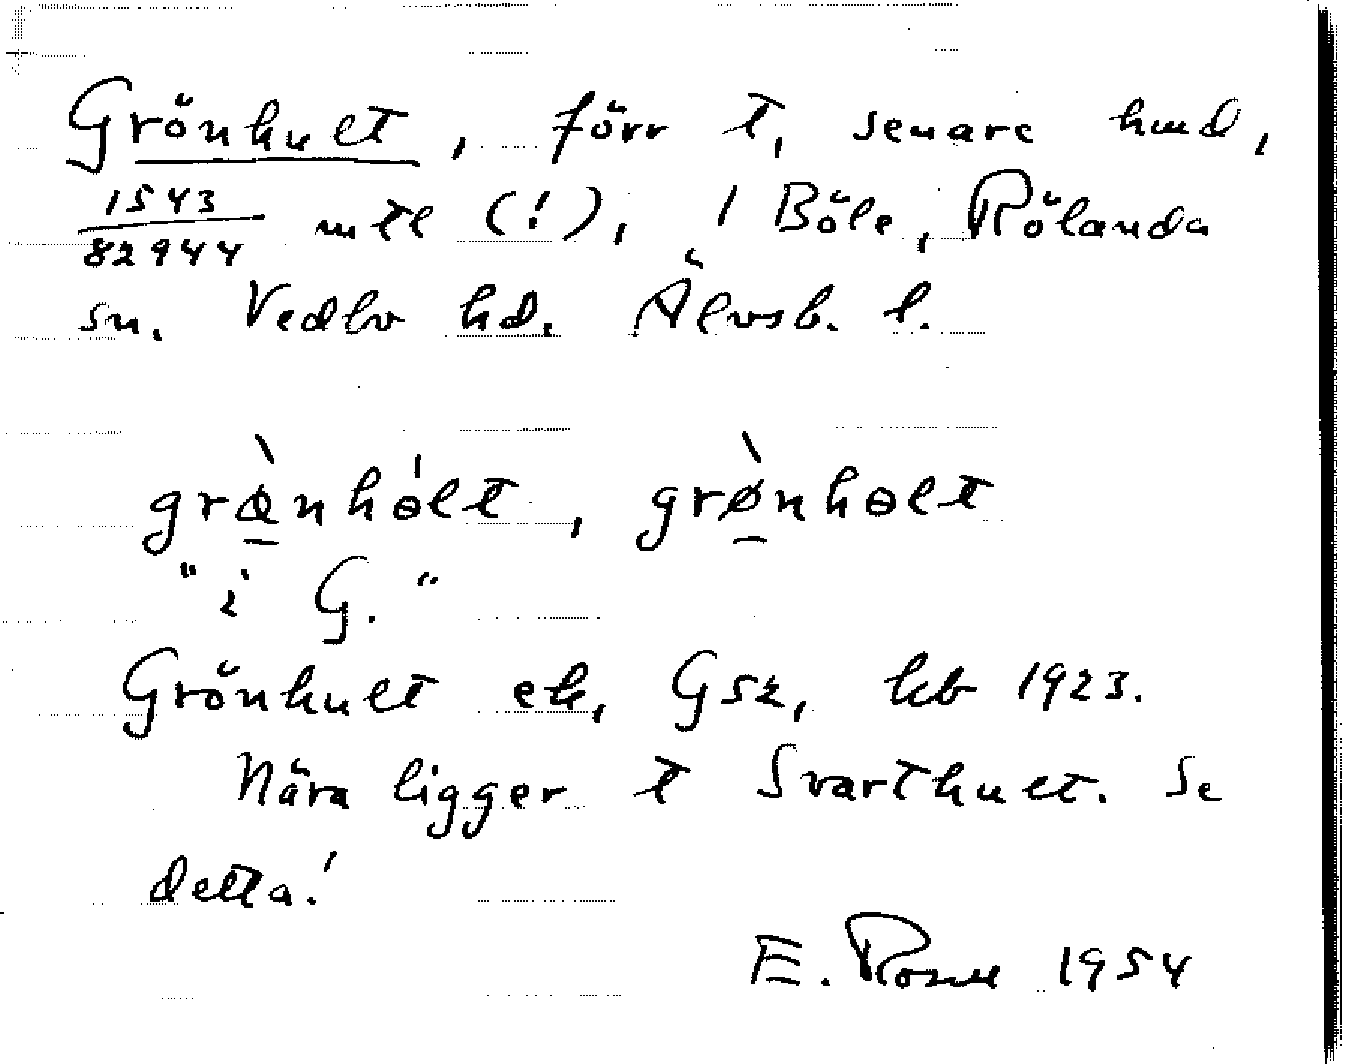 Grönhult, förr t, senare hmd,
1543/82944 mtl (!), 1 Böle, Rölanda
sn. Vedbo hd. Älvsb. l.
grø̀nhólt, grø̀nhɵlt
"i G."
Grönhult ek, Gsk, kb 1923.
Nära ligger t Svarthult. Se
detta!
E. Rosell 1954